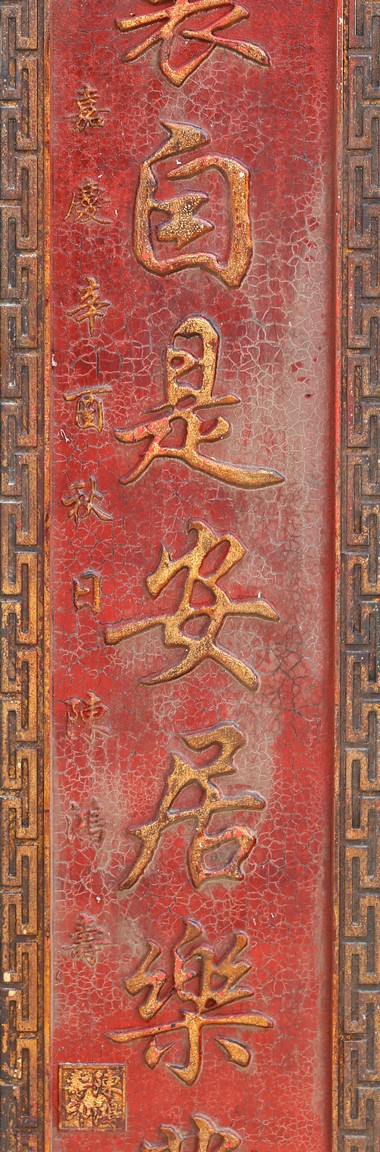 自是安居樂
嘉慶辛酉秋日陳鴻壽